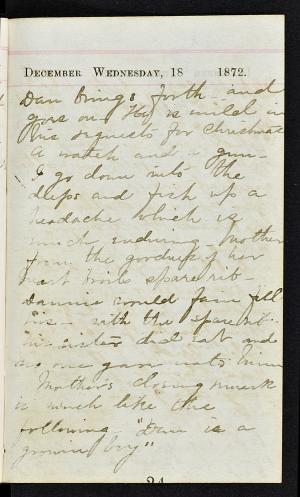 December Wednesday, 18 1872.
Dan brings forth and
goes on. He is mild in
his requests for Christmas
A watch and a gun-
I go down into the
deeps and fish up a
headache which is
much enduring. Mother
from the goodness of her
heart broils sparerib-
Dannie would fain fill
his - with the sparerib.
his sister did eat and
no one gave unto him
Mother's closing remark
is much like the
following "Dan is a
growing boy"
24